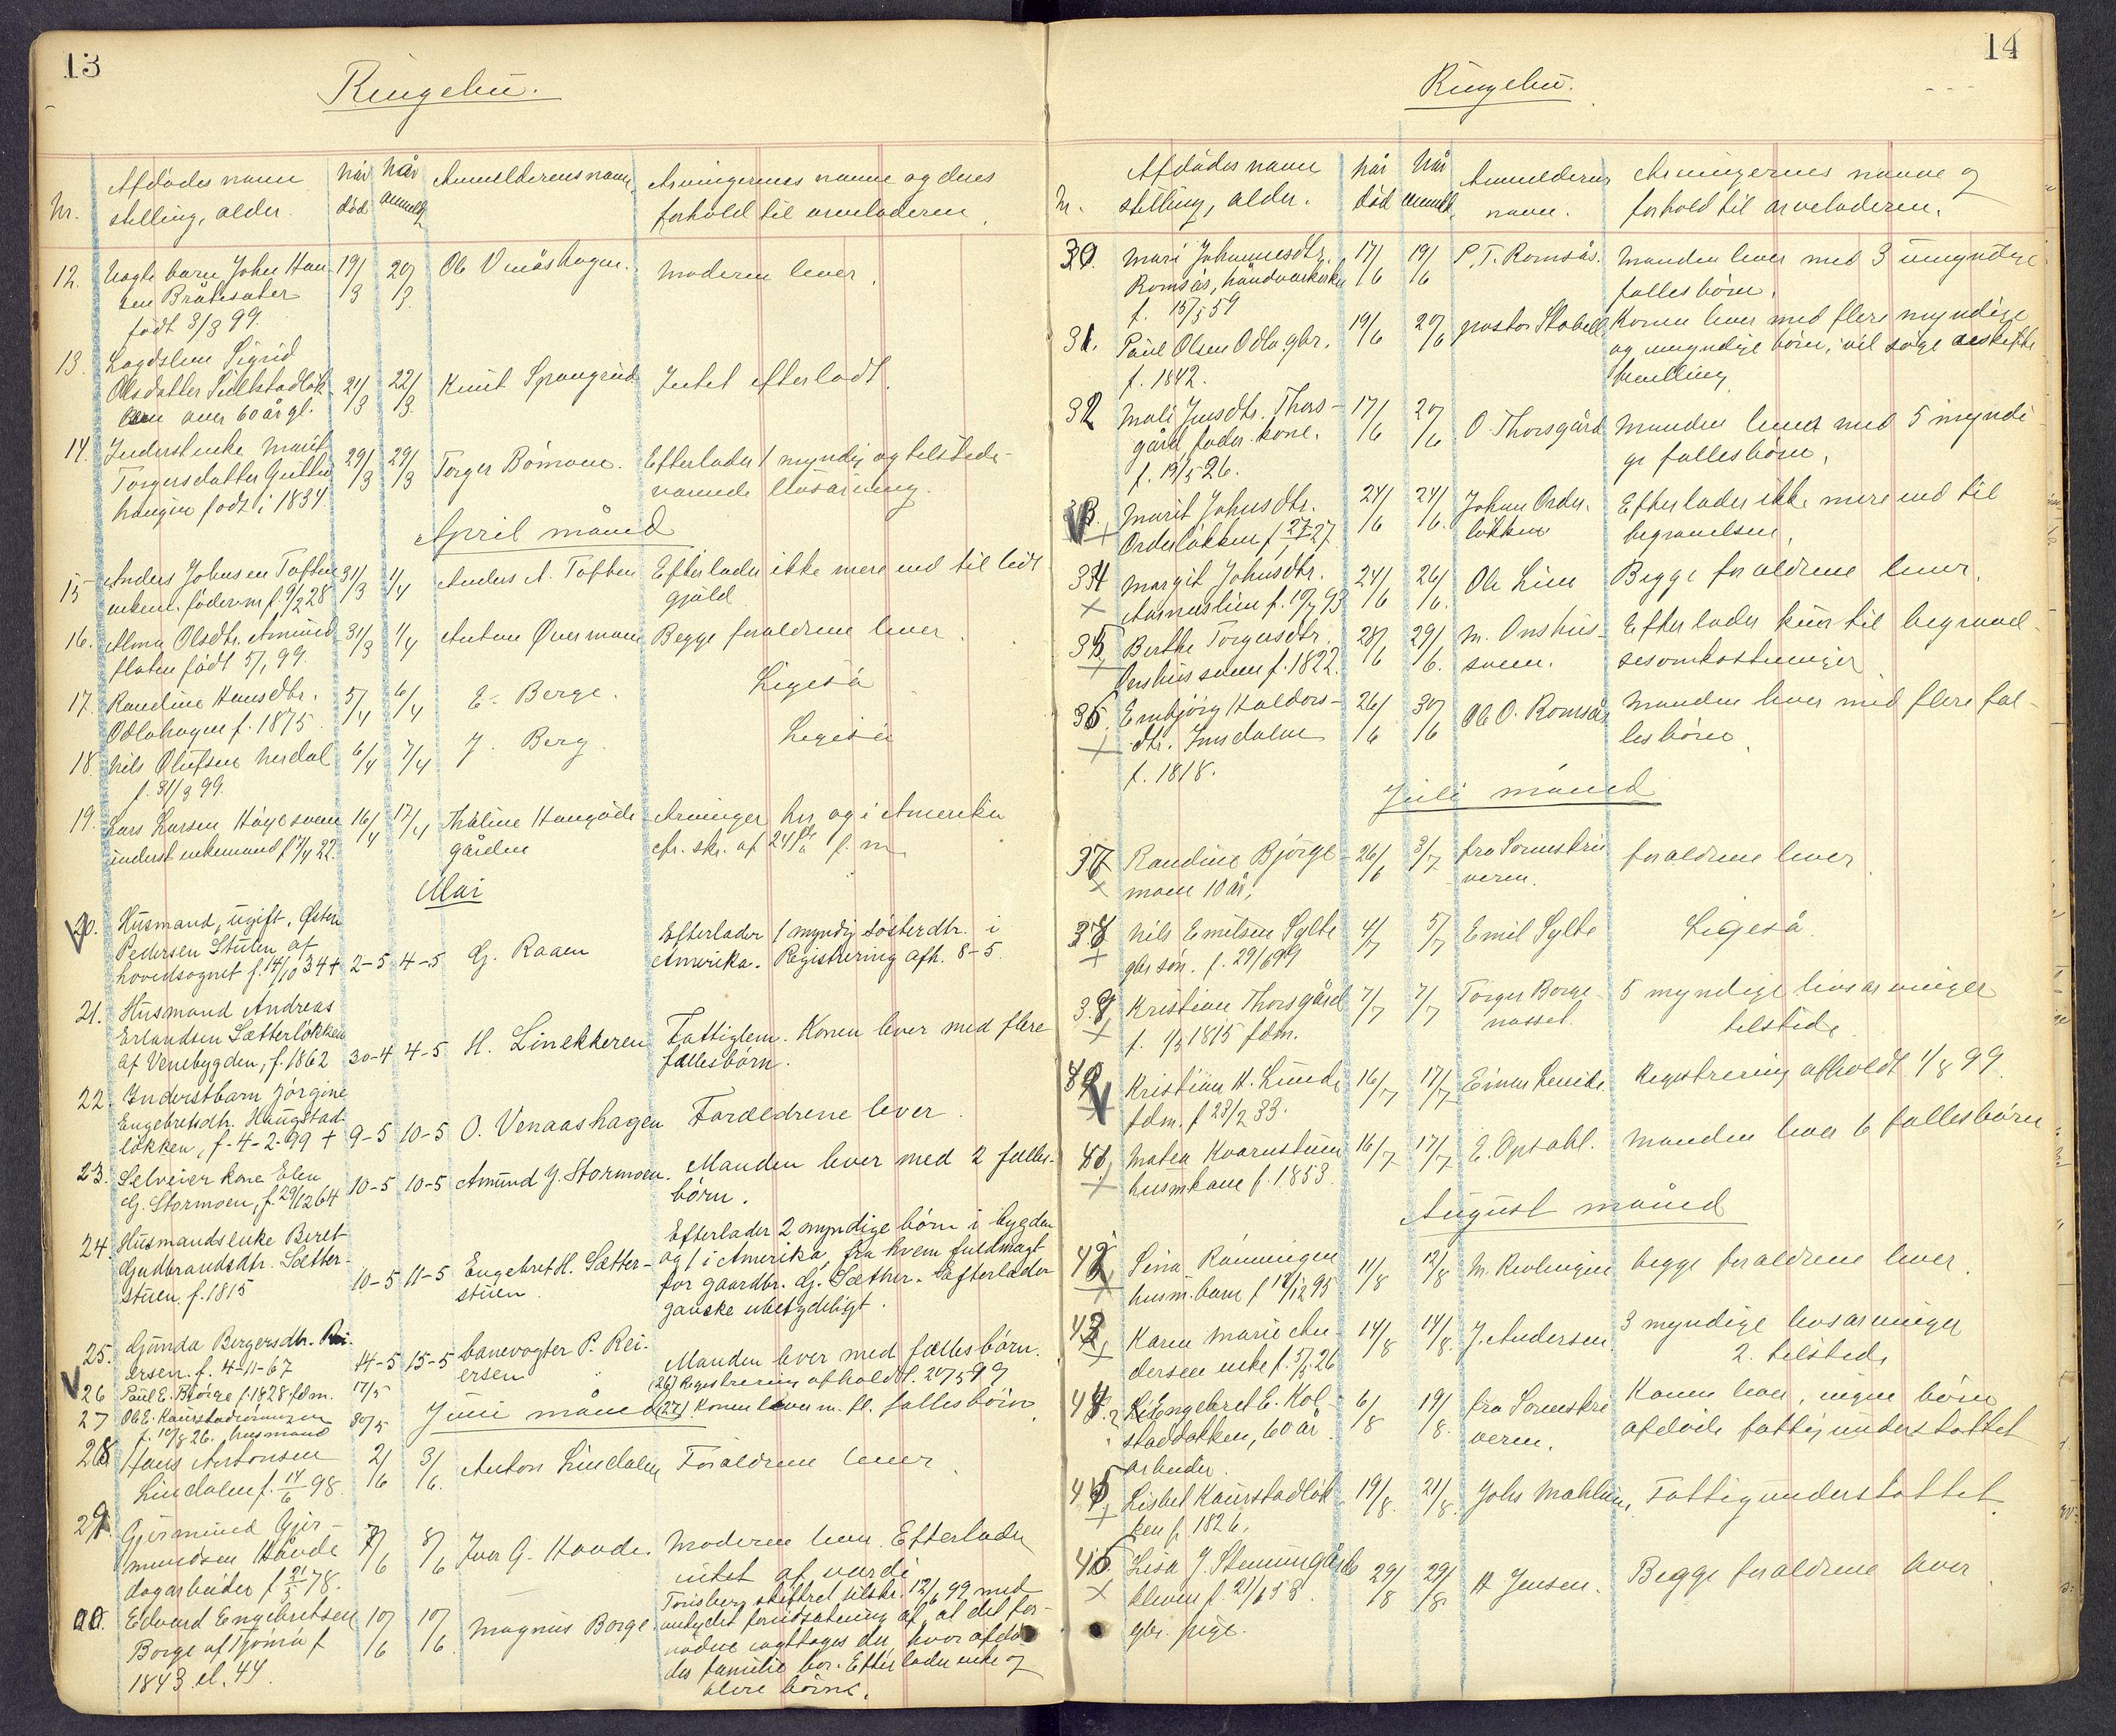 13
Ringebu.
Nr.
Afdødes navn
stilling, alder.
Når
død
Når
anmeldt
Anmelderens navn
Arvingernes navne og deres
forhold til arveladeren.
12.
Uægte barn John Han-
sen Bråtesæter
født 3/3 99.
19/3
20/3
Ole Venåshagen.
Moderen lever.
13.
Lægdslem Sigrid
Olsdatter
over 60 år gl.
21/3
22/3
Knut Sprangrud
Intet efterladt.
14.
Inderst enke Marit
Torgersdatter
haugen født i 1834.
29/3
29/3
Torger Bömoen.
Efterlader 1 myndig og tilstede-
værende livsarving.
April måned
15
Anders Johnsen Toften
enkem. föderm f. 9/2 28
31/3
1/4
Anders A. Toften
Efterlader ikke mere end til lidt
gjæld
16.
Alma Olsdtr. Amund-
flaten født 5/1 99.
31/3
1/4
Anton Øvermoen
Begge forældrene lever.
17.
Randine Hansdtr.
Odlohagen f. 1875
5/4
6/4
E. Berge.
Ligeså
18.
Nils Olufsen Nerdal
f. 31/3 99.
6/4
7/4
J. Berg.
Ligeså
19.
Lars Larsen Höyesveen
inderst enkemand f 17/4 22.
16/4
17/4
Thaline Haugöde-
gården
Arvinger her og i Amerika
cfr. skr. af 24de f. m.
Mai
20.
Husmand, ugift, Østen
Pedersen Stuen af
hovedsognet f. 14/10 34 +
2-5
4-5
G. Raaen
Efterlader 1 myndig søsterdtr. i
Amerika. Registrering afh. 8-5.
21.
Husmand Andreas
Erlandsen Sætterløkken
af Venebygden, f. 1862
30-4
4-5
H. Linekkeren
Fattiglem. Konen lever med flere
fællesbörn.
22.
Inderstbarn Jörgine
Engebretsdtr. Haugstad-
løkken, f. 4-2-99 +
9-5
10-5
O. Venaashagen
Forældrene lever.
23.
Selveier kone Elen
G. Stormoen, f. 29/12 64
10-5
10-5
Amund G. Stormoen.
Manden lever med 2 fælles-
börn.
24.
Husmandsenke Beret
Gudbrandsdtr. Sætter-
stuen. f. 1815
10-5
11-5
Engebret H. Sætter-
stuen.
Efterlader 2 myndige börn i bygden
og 1 i Amerika, fra hvem fuldmagt
for gaardbr. G. Sæther. Efterlader
ganske ubetydeligt.
25.
Gunda Bergersdtr. Rei-
ersen. f. 4-11-67
14-5
15-5
banevogter P. Rei-
ersen
Manden lever med fællesbörn.
26
Paul E. Björge f. 1828 fdm.
17/5
(26) Registrering afholdt. 20/5 99
27
Ole E. Kaurstadrönningen
f. 10/8 26. husmand
30/5
(27). Konen lever m. fl. fællesbörn
Juni måned
28
Hans Antonsen
Lindalen f. 14/6 98.
2/6
3/6.
Anton Lindalen
Forældrene lever.
29.
Gjermund Gjer-
mundsen Hövde
dagarbeider f. 21/5 78.
7/6
8/6
Iver G. Hovde.
Moderen lever. Efterlader
intet af værdi
Edvard Engebretsen
Borge af Tjömö f
1843 el. 44.
10/6
10/6.
Magnus Borge.
Tönsberg skifteret tilskr. 12/6 99 med
antydet forudsætning af, at det for-
nødne iagttages der, hvor afdö-
des familie bor. Efterlader enke og
flere börn.
14
Ringebu.
Nr.
Afdødes navn
stilling, alder.
Når
død
Når
anmeldt
Anmelderens
navn.
Arvingernes navne og
forhold til arveladeren.
30.
Mari Johannesdtr.
Romsås, håndværkerkone
f. 15/5 59
17/6
19/6
P. T. Romsås.
Manden lever med 3 umyndige
fællesbörn.
31.
Paul Olsen Odlo. gbr.
f. 1842.
19/6
20/6
pastor Stabell
Konen lever med flere myndige
og umyndige börn, vil søge uskifte
bevilling
32
Mali Jensdtr. Thors-
gård föder. kone.
f. 19/5 26.
17/6
20/6
O. Thorsgård
Manden lever med 5 myndi
ge fællesbörn.
33.
Marit Johnsdtr.
Orderløkken f. 27
24/6
24/6.
Johan Order-
løkken
Efterlader ikke mere end til
begravelsen.
34
Margit Johnsdtr.
Aasmuslien f. 10/7 93
24/6
26/6.
Ole Lien
Begge forældrene lever.
35,
Berthe Torgersdtr.
Onshussveen f. 1822.
28/6
29/6.
M. Onshus-
sveen.
Efterlader kun til begravel-
sesomkostninger
36.
Embjörg Haldors-
dtr. Imsdalen
f. 1818.
26/6
30/6
Ole O. Romsås
Manden lever med flere fæl-
lesbörn.
Juli måned
37
Randine Björge-
moen 10 år.
26/6
3/7
fra Sorenskri
veren.
forældrene lever
38
Nils Emilsen Sylte
gbr sön. f. 29/6 99
4/7
5/7
Emil Sylte
Ligeså.
39,
Kristian Thorsgård
f. 1/5 1815 fdm.
7/7
7/7
Torger Borge-
næsset.
5 myndige livsarvinger
tilstede
40
Kristian H. Lunde
fdm. f 23/2 33.
16/7
17/7
Einar Lunde.
Registrering afholdt 1/8 99.
41,
Matea Kvarnstuen
husmkone f. 1853.
16/7
17/7
E. Opsahl.
Manden lever 6 fællesbörn
August måned
42
Sina Rönningen
husm. barn f 18/12 95
11/8
12/8
M. Kvolvigen
begge forældrene lever.
43
Karen Marie An-
dersen enke f. 5/5 26
14/8
14/8.
J. Andersen.
3 myndige livsarvinger
2. tilstede
44.
Engebret E. Kol-
stadløkken, 60 år
arbeider.
6/8
19/8.
fra Sorenskri
veren.
Konen lever, ingen börn
afdøde fattigunderstøttet
45
Lisbet Kaurstadløk-
ken f. 1826.
19/8.
21/8.
Johs Mæhlum.
Fattigunderstøttet.
46.
Lisa J. Stenumgårds
kleven f. 21/6 58.
gbr. pige.
29/8
29/8
H Jensen.
Begge forældrene lever.